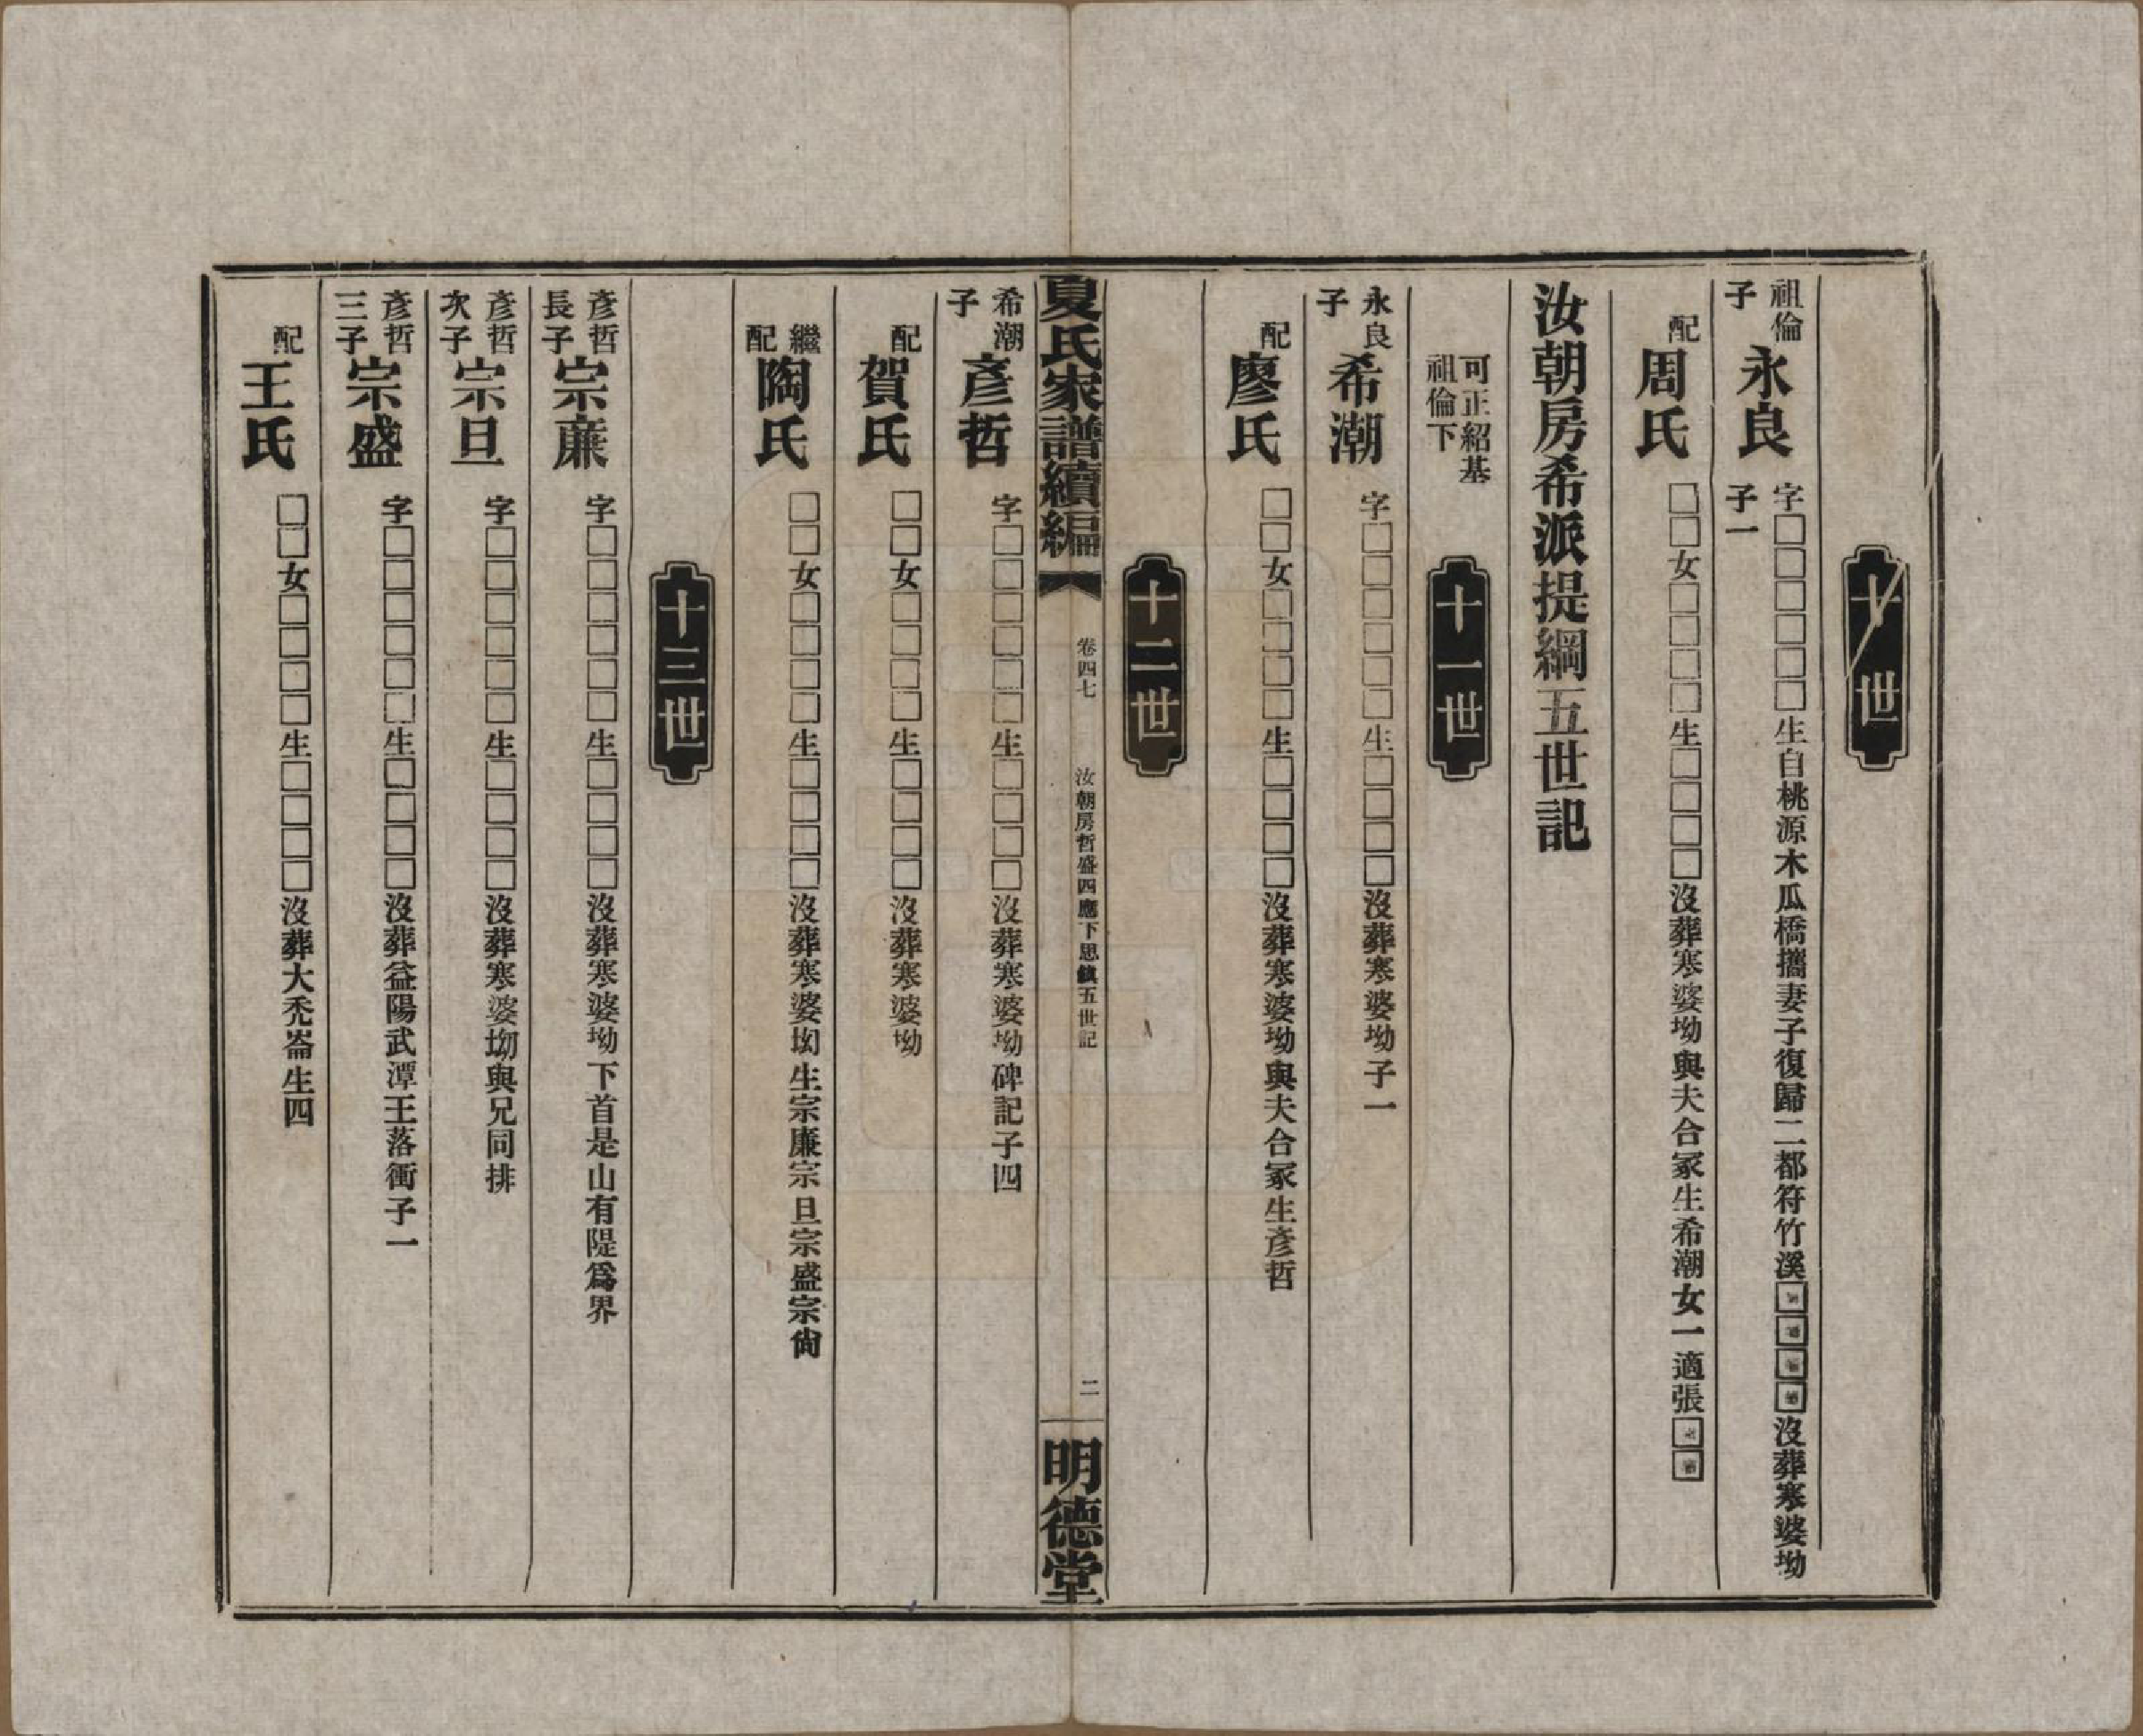 十世
祖倫子 永良 字□□□□□□生自桃源木瓜橋攜妻子復歸二都符竹溪□□□□沒葬寒婆坳子一
配 周氏 □□女□□□□生□□□□沒葬寒婆坳與夫合冢生希潮女一適張□□
汝朝房希派提綱五世記
可正紹基祖倫下
十一世
永良子 希潮 字□□□□□□生□□□□沒葬寒婆坳子一
配 廖氏 □□女□□□□生□□□□沒葬寒婆坳與夫合冢生彥哲
十二世
夏氏家譜續編 卷四七 汝朝房哲盛四應下思鎮五世記 二 明德堂
希潮子 彥哲 字□□□□□□生□□□□沒葬寒婆坳碑記子四
配 賀氏 □□女□□□□生□□□□沒葬寒婆坳
繼配 陶氏 □□女□□□□生□□□□沒葬寒婆坳生宗廉宗旦宗盛宗尙
十三世
彥哲長子 宗廉 字□□□□□□生□□□□沒葬寒婆坳下首是山有隄爲界
彥哲次子 宗旦 字□□□□□□生□□□□沒葬寒婆坳與兄同排
彥哲三子 宗盛 字□□□□□□生□□□□沒葬益陽武潭王落衝子一
配 王氏 □□女□□□□生□□□□沒葬大禿崙生四